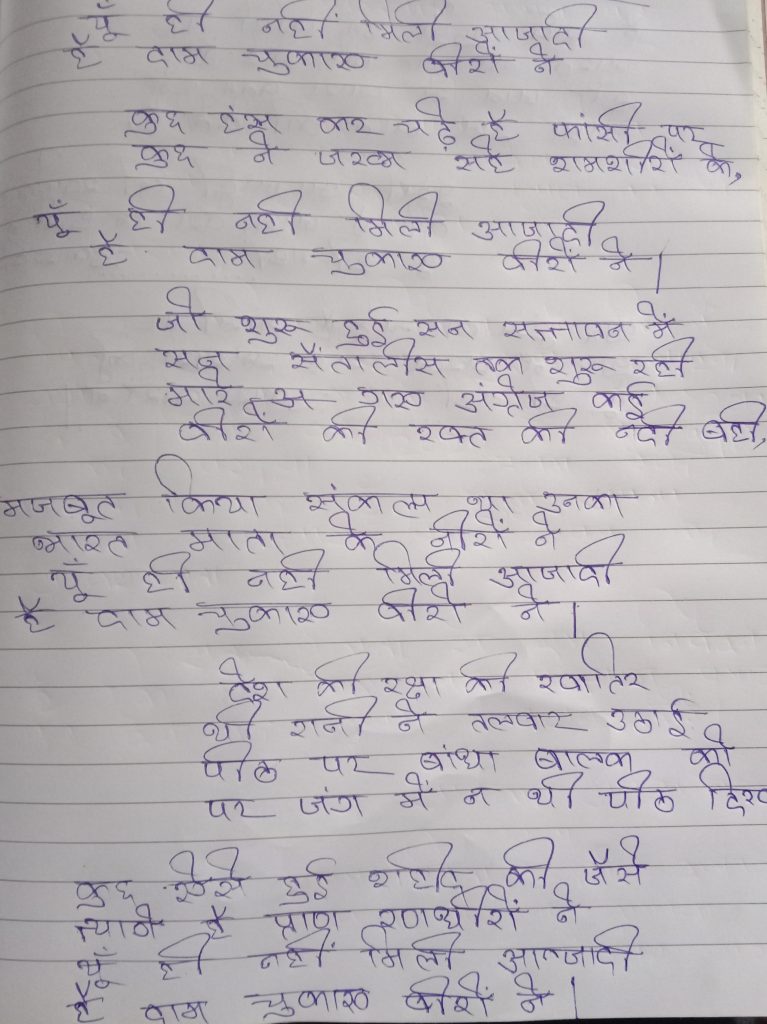 यूँ ही नहीं मिली आजादी
है दाम चुकाए वीरों ने
कुछ हंस कर चढ़े है फांसी पर
कुछ ने जख्म सहे शमशीरों के,
यूँ ही नही मिली आजादी
है दाम चुकाए वीरों ने।
जो शुरू हुई सन सत्तावन में
सन सैंतालीस तक शुरू रही
मारे गए अंग्रेज कई
वीरों की रक्त की नदी बही,
मजबूत किया संकल्प था उनका
भारत माता के नीरों ने
यूँ ही नही मिली आजादी
है दाम चुकाए वीरों ने।
देश की रक्षा की खातिर
थी रानी ने तलवार उठाई
पीठ पर बांधा बालक को
पर जंग में न थी पीठ दिख
कुछ ऐसे हुई शहीद की जैसे
त्यागे है प्राण रणधीरों ने
यूँ ही नहीं मिली आजादी
है दाम चुकाए वीरों ने।